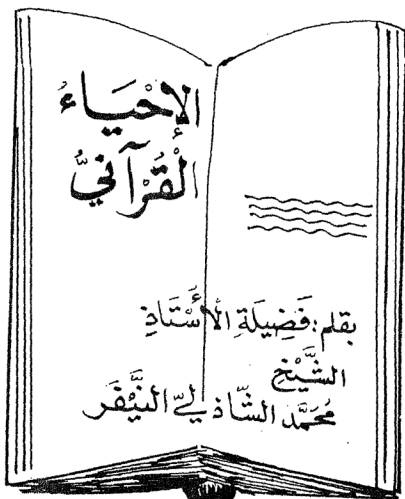 الإِحْيَاءُ
الْقُرْآنِيُّ
بقلم: فَضِيلَةِ الأُسْتَاذِ
الشَّيْخ
مُحَمَّد الشَّاذلِيّ النَّيْفَر